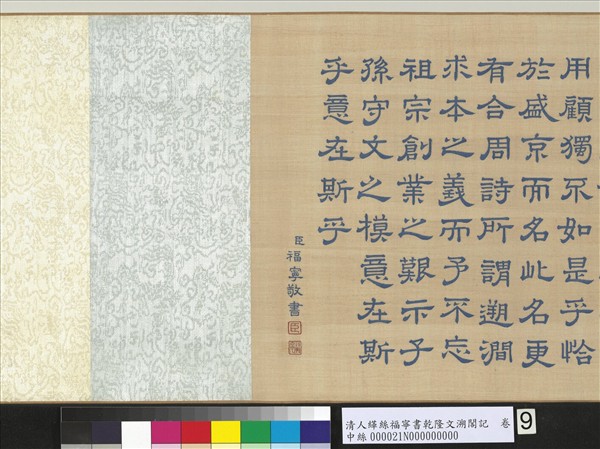 用顧獨不如是乎恰
於盛京而名此名更
有合周詩所謂遡澗
求本之義而予不忘
祖宗創業之艱示子
孫守文之模意在斯
乎意在斯乎
臣福寧敬書
臣
清人緙絲福寧書乾隆文溯閣記 卷 9
中絲 000021N000000000